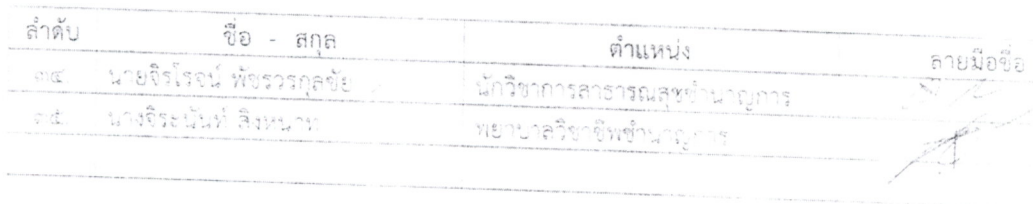 ลำดับ ชื่อ - สกุล ตำแหน่ง ลายมือชื่อ
๓๔ นายจิรโรจน์ พัชรวรกุลชัย นักวิชาการสาธารณสุขชำนาญการ
๓๕ นางจิระนันท์ สิงหนาท พยาบาลวิชาชีพชำนาญการ